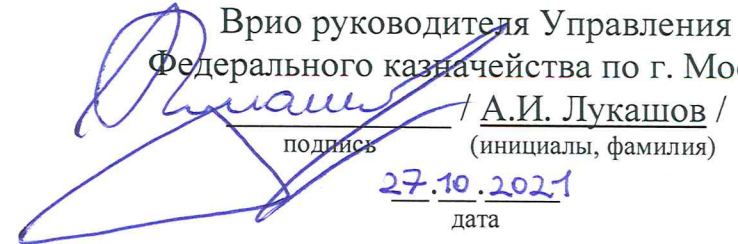 Врио руководителя Управления
Федерального казначейства по г. Мос
/ А.И. Лукашов /
подпись (инициалы, фамилия)
27.10.2021
дата